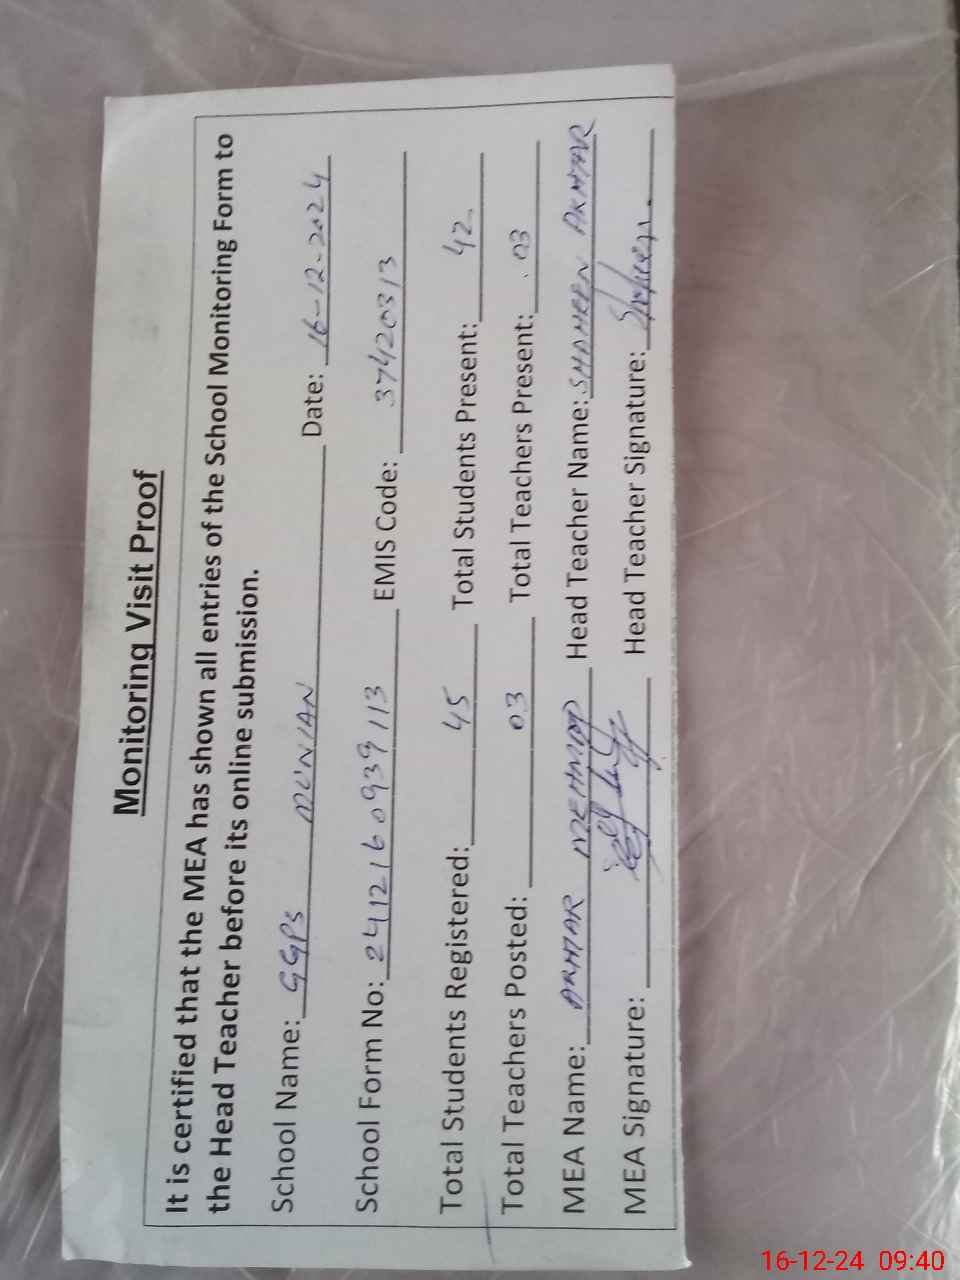 Monitoring Visit Proof
It is certified that the MEA has shown all entries of the School Monitoring Form to
the Head Teacher before its online submission.
School Name: GGPS MUNIAN Date: 16-12-2024
School Form No: 2412160939113 EMIS Code: 37420313
Total Students Registered: 45 Total Students Present: 42
Total Teachers Posted: 03 Total Teachers Present: 03
MEA Name: AKHTAR MEHMOOD Head Teacher Name: SHAHEEN AKHTAR
MEA Signature: Head Teacher Signature: Shaheen
16-12-24 09:40